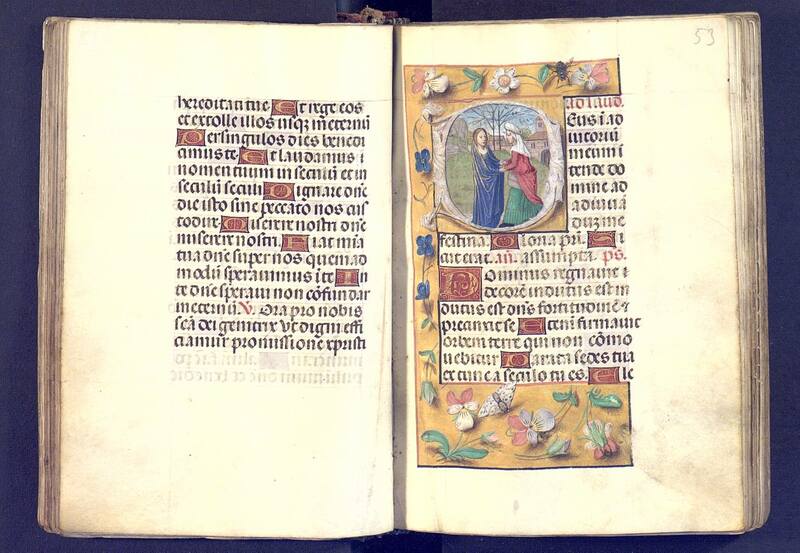 hereditati tue Et rege eos
et extolle illos usqȝ in eternū
Per singulos dies benedi
cimus te Et laudamus
nomen tuum in seculū et in
seculū seculi Dignare dn̄e
die isto sine peccato nos cus
todire Miserere nostri dn̄e
miserere nostri Fiat mīa
tua dn̄e super nos quemad
modū sperauimus ī te In
te dn̄e speraui non cōfundar
in eternū V̷. Ora pro nobis
sca dei genitrix Vt digni effi
ciamur promissione xpristi
53
ad laud.
Deus ī ad
iutoriū
meum ī
tende do
mine ad
adiuuā
dū me
festina. Gloria pri. Si
cut erat. an. assumpta. ps.
Dominus regnauit
decorē indutus est in
dutus est dn̄s fortitudinē &
precinxit se Eteni firmauit
orbem terre qui non cōmo
uebitur Parata sedes tua
ex tunc a seculo tu es. Ele